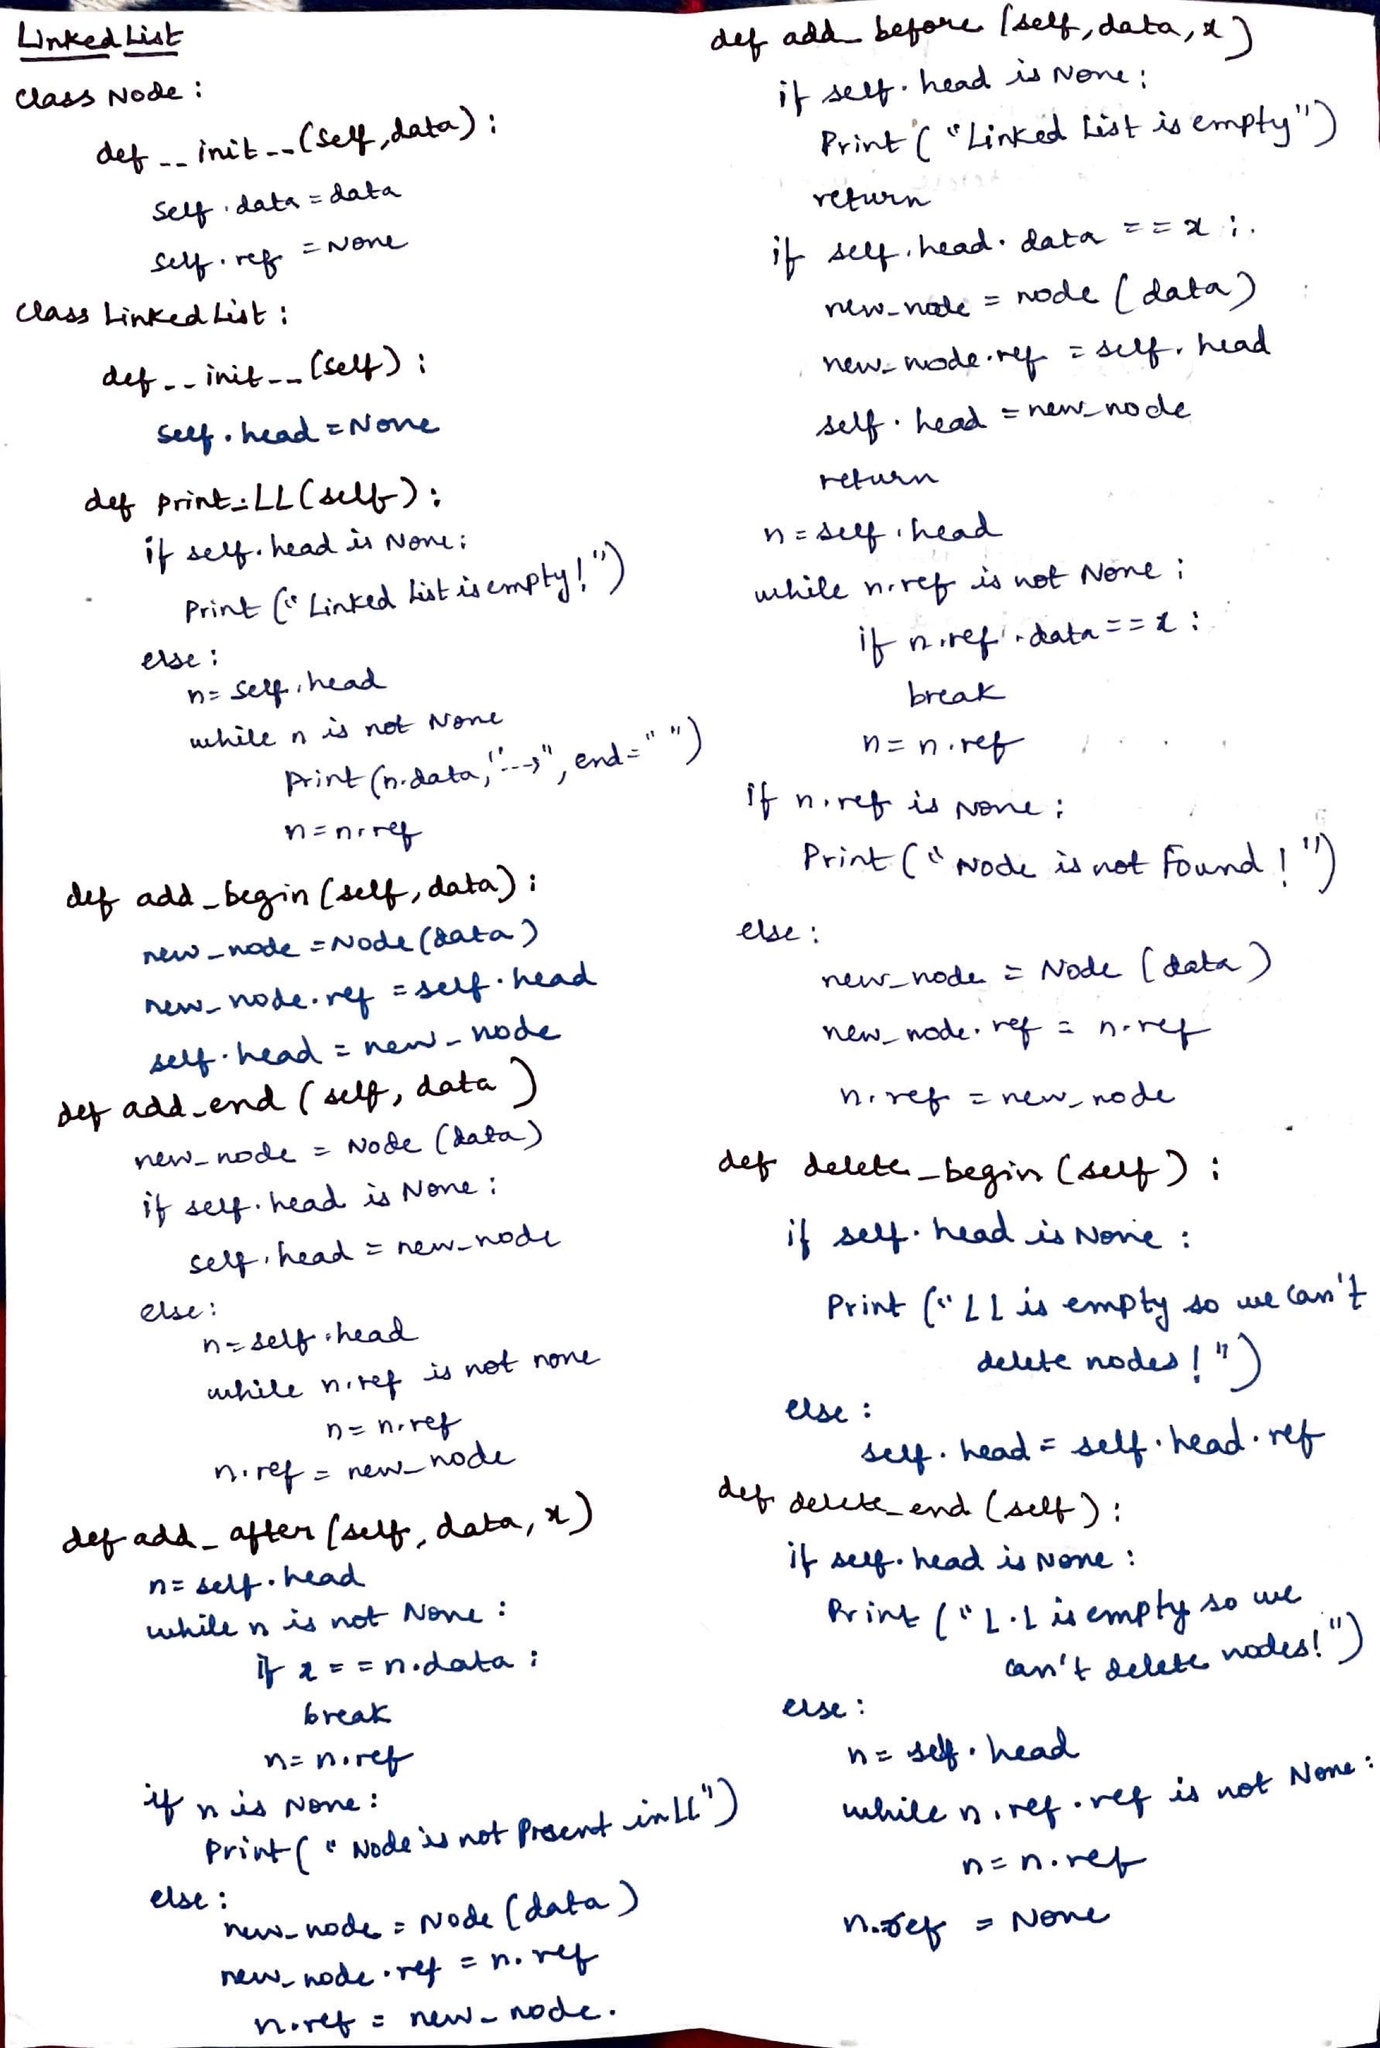 Linked List
class Node :
def __init__(self,data) :
self.data = data
self.ref = None
class Linked List :
def __init__(self) :
self.head = None
def print_LL(self) :
if self.head is None :
Print ("Linked List is empty!")
else :
n = self.head
while n is not None
Print (n.data,"-->", end=" ")
n = n.ref
def add_begin (self,data) :
new_node = Node (data)
new_node.ref = self.head
self.head = new_node
def add_end (self, data)
new_node = Node (data)
if self.head is None :
self.head = new_node
else :
n = self.head
while n.ref is not none
n = n.ref
n.ref = new_node
def add_after (self, data, x)
n = self.head
while n is not None :
if x == n.data :
break
n = n.ref
if n is None :
Print ("Node is not Present in LL")
else :
new_node = Node (data)
new_node.ref = n.ref
n.ref = new_node.
def add_before (self, data, x)
if self.head is None :
Print ("Linked List is empty")
return
if self.head.data == x :
new_node = node (data)
new_node.ref = self.head
self.head = new_node
return
n = self.head
while n.ref is not None :
if n.ref.data == x :
break
n = n.ref
if n.ref is None :
Print ("Node is not Found !")
else :
new_node = Node (data)
new_node.ref = n.ref
n.ref = new_node
def delete_begin (self) :
if self.head is None :
Print ("LL is empty so we can't
delete nodes !")
else :
self.head = self.head.ref
def delete_end (self) :
if self.head is None :
Print ("L.L is empty so we
can't delete nodes!")
else :
n = self.head
while n.ref.ref is not None :
n = n.ref
n.ref = None